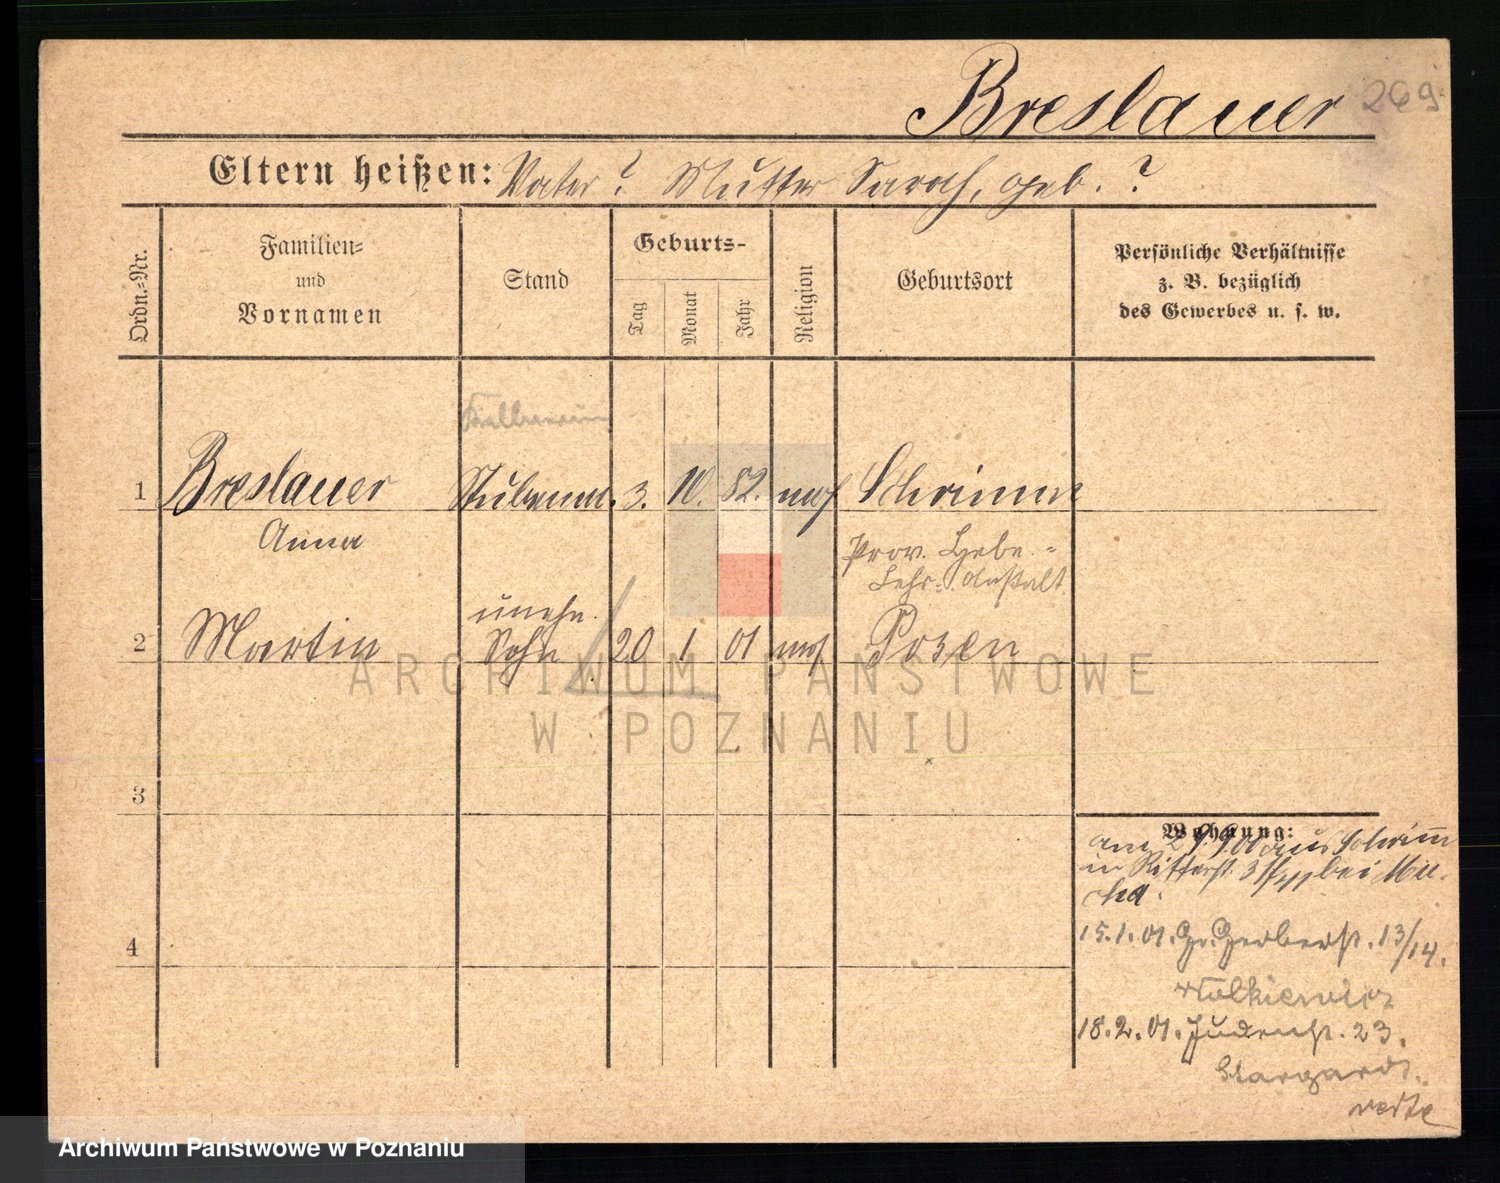 Breslauer 269
Eltern heißen: Vater? Mutter Sarah, geb. ?
Ordn.-Nr.
Familien-
und
Vornamen
Stand
Geburts-
Tag
Monat
Jahr
Religion
Geburtsort
Persönliche Verhältnisse
z. B. bezüglich
des Gewerbes u. s. w.
Kellnerin
1 Breslauer 3. 10. 82. mos Schrimm
Anna
Prov. Hebe-
Lehr-Anstalt
unehe.
2 Martin Sohn 20 1 01 mos Posen
ARCHIWUM PAŃSTWOWE
W POZNANIU
3
Wohnung:
am 29.9.00 aus Schrimm
in Ritterst. bei Mu-
cha.
4
15.1.01. Gr. Gerberst. 13/14.
Wolkiewicz
18.2.01. Judenst. 23.
Stargardt.
verte
Archiwum Państwowe w Poznaniu